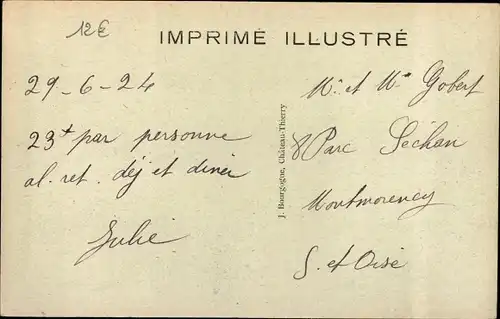 12€
IMPRIMÉ ILLUSTRÉ
29-6-24
23+ par personne
al. ret. déj et diner
Julie
J. Bourgogne, Château-Thierry
Mr. et Me Gobert
8 Parc Séchan
Montmorency
S. et Oise